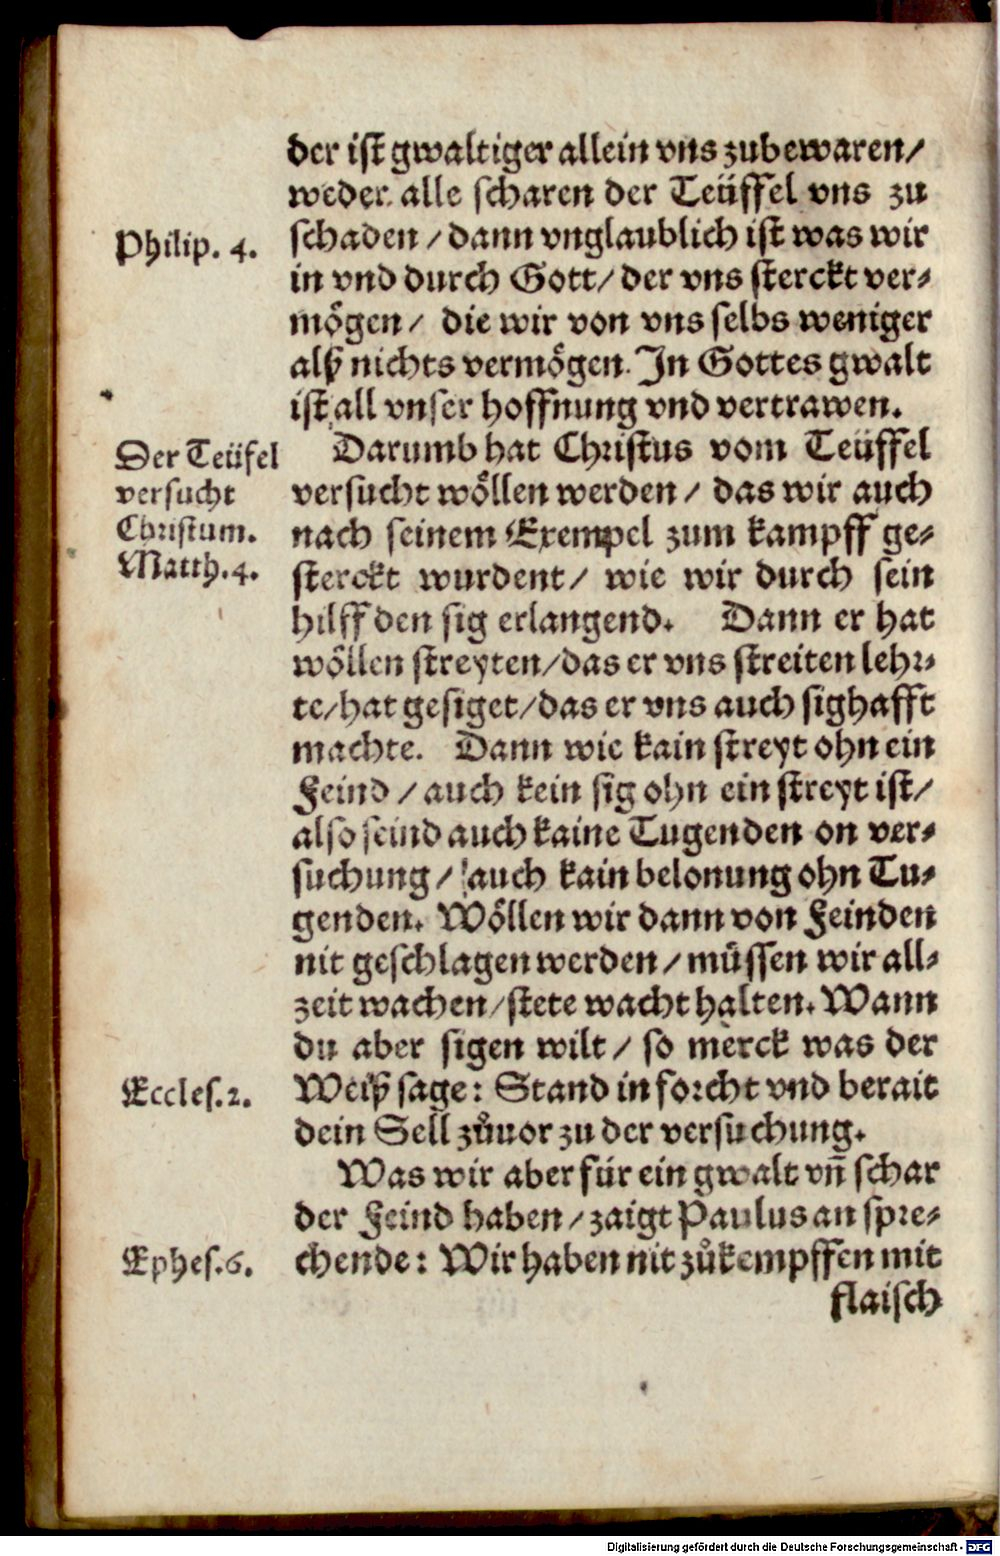 der ist gwaltiger allein vns zubewaren/
weder alle scharen der Teüffel vns zu
Philip. 4.
schaden / dann vnglaublich ist was wir
in vnd durch Gott/ der vns sterckt ver-
mögen/ die wir von vns selbs weniger
alß nichts vermögen. In Gottes gwalt
ist all vnser hoffnung vnd vertrawen.
Der Teüfel
versucht
Christum.
Matth. 4.
Darumb hat Christus vom Teüffel
versucht wöllen werden / das wir auch
nach seinem Exempel zum kampff ge-
sterckt wurdent/ wie wir durch sein
hilff den sig erlangend. Dann er hat
wöllen streyten/das er vns streiten lehr-
te/hat gesiget/das er vns auch sighafft
machte. Dann wie kain streyt ohn ein
Feind / auch kein sig ohn ein streyt ist/
also seind auch kaine Tugenden on ver-
suchung / auch kain belonung ohn Tu-
genden. Wöllen wir dann von Feinden
nit geschlagen werden / müssen wir all-
zeit wachen/stete wacht halten. Wann
du aber sigen wilt / so merck was der
Eccles. 2.
Weiß sage: Stand in forcht vnd berait
dein Sell zůuor zu der versuchung.
Was wir aber für ein gwalt vñ schar
der Feind haben / zaigt Paulus an spre-
Ephes. 6.
chende: Wir haben nit zůkempffen mit
flaisch
Digitalisierung gefördert durch die Deutsche Forschungsgemeinschaft - DFG